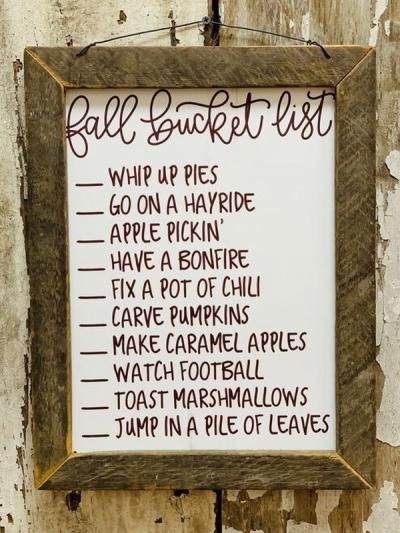 fall bucket list
__ WHIP UP PIES
__ GO ON A HAYRIDE
__ APPLE PICKIN'
__ HAVE A BONFIRE
__ FIX A POT OF CHILI
__ CARVE PUMPKINS
__ MAKE CARAMEL APPLES
__ WATCH FOOTBALL
__ TOAST MARSHMALLOWS
__ JUMP IN A PILE OF LEAVES